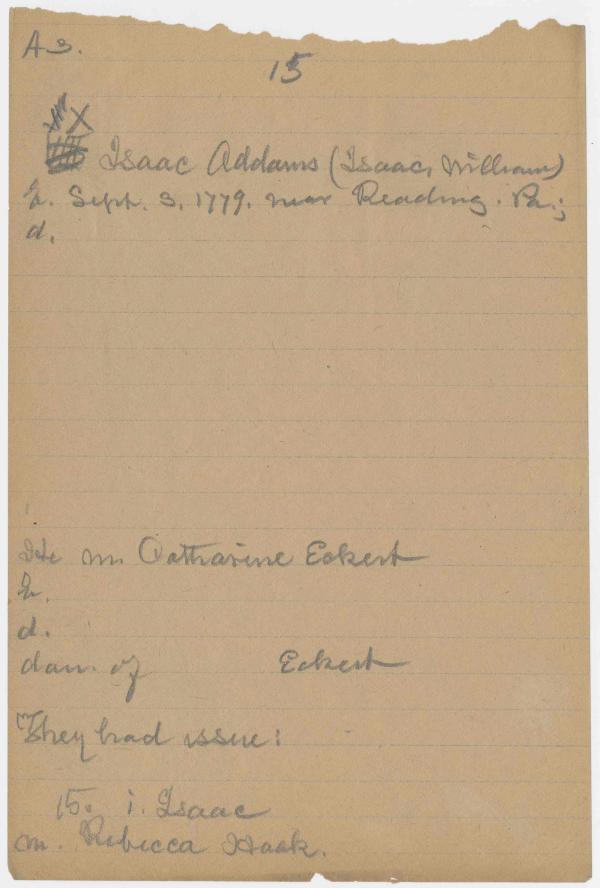 A 3.
15
X Isaac Addams (Isaac, William)
b. Sept. 3, 1779, near Reading. Pa.;
d.
He m. Catharine Eckert
b.
d.
dau. of Eckert
They had issue:
15. i. Isaac
m. Rebecca Haak.